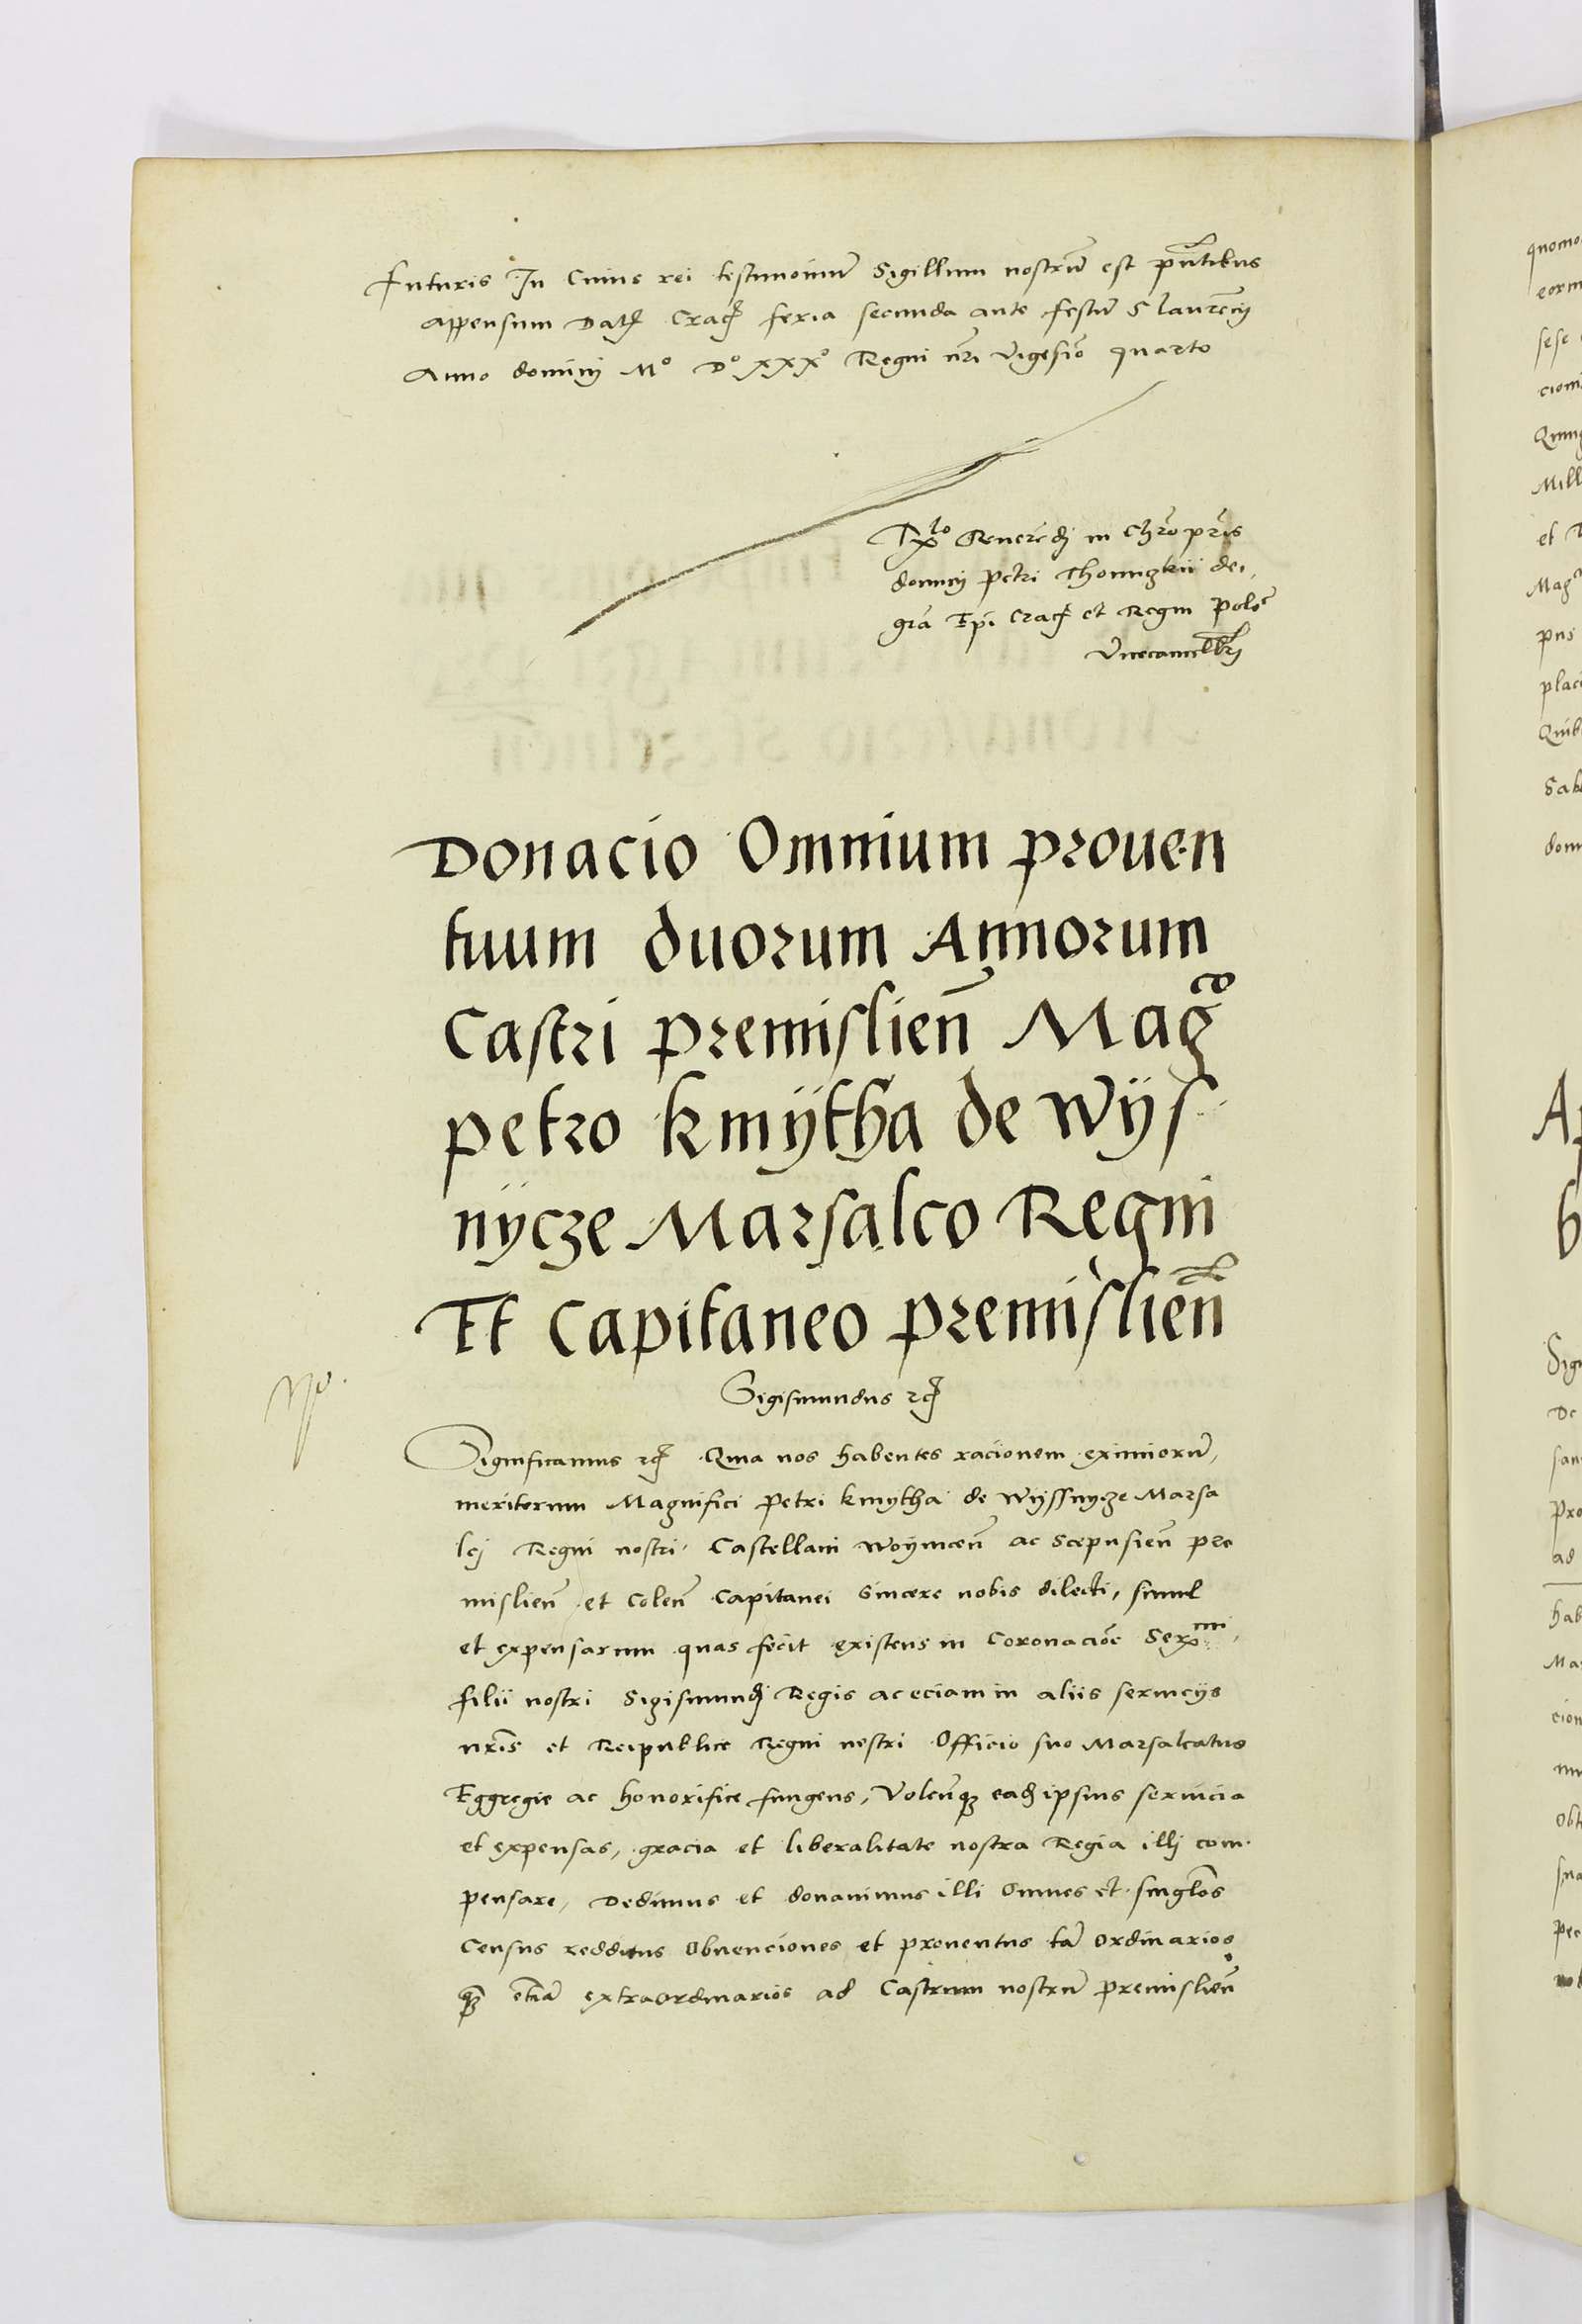 futuris In Cuius rei testimoniū Sigillum nostrū est pn̄tibus
appensum Datꝭ Cracꝭ feria secunda ante festū S laurēcij
Anno dominij Mº Dº XXXº Regni nr̄i vigesiō quarto
Rᵉˡᵒ Reuerēdj in Chrō pr̄is
dominj petri Thomiczkii dei
grā Ep̄i Cracꝭ et Regni polōe
vicecancellrij
Donacio Omnium prouen
tuum duorum Annorum
Castri premislien̄ Magᶜᵒ
petro kmÿtha de Wijs
nÿcze Marsalco Regni
Et Capitaneo premislien̄
Sigismundus rcꝭ
Significamus rcꝭ Quia nos habentes racionem eximiorū
meritorum Magnifici petri kmytha de Wijssnycze Marsa
lcj Regni nostri Castellani Woÿnicen̄ ac Scepusien̄ pre
mislien̄ et Colen̄ Capitanei Sincere nobis dilecti, simul
et expensarum quas fecit existens in Coronaciōe Serᵐⁱ
filii nostri Sigismundj Regis ac eciam in aliis seruicijs
nr̄is et Reipublice Regni nostri Officio suo Marsalcatus
Eggregie ac honorifice fungens, Volen̄qꝫ eadꝫ ipsius seruicia
et expensas, gracia et liberalitate nostra Regia illj com
pensare, Dedimus et donauimus illi Omnes et singlōs
Census redditus Obuenciones et prouentus tā ordinarios
qꝫ etiā extraordinarios ad Castrum nostrū premislien̄
quomo
eorm
sese
cioni
Quing
Mill
et
Mag
pus
placi
Quib
Sab
dom